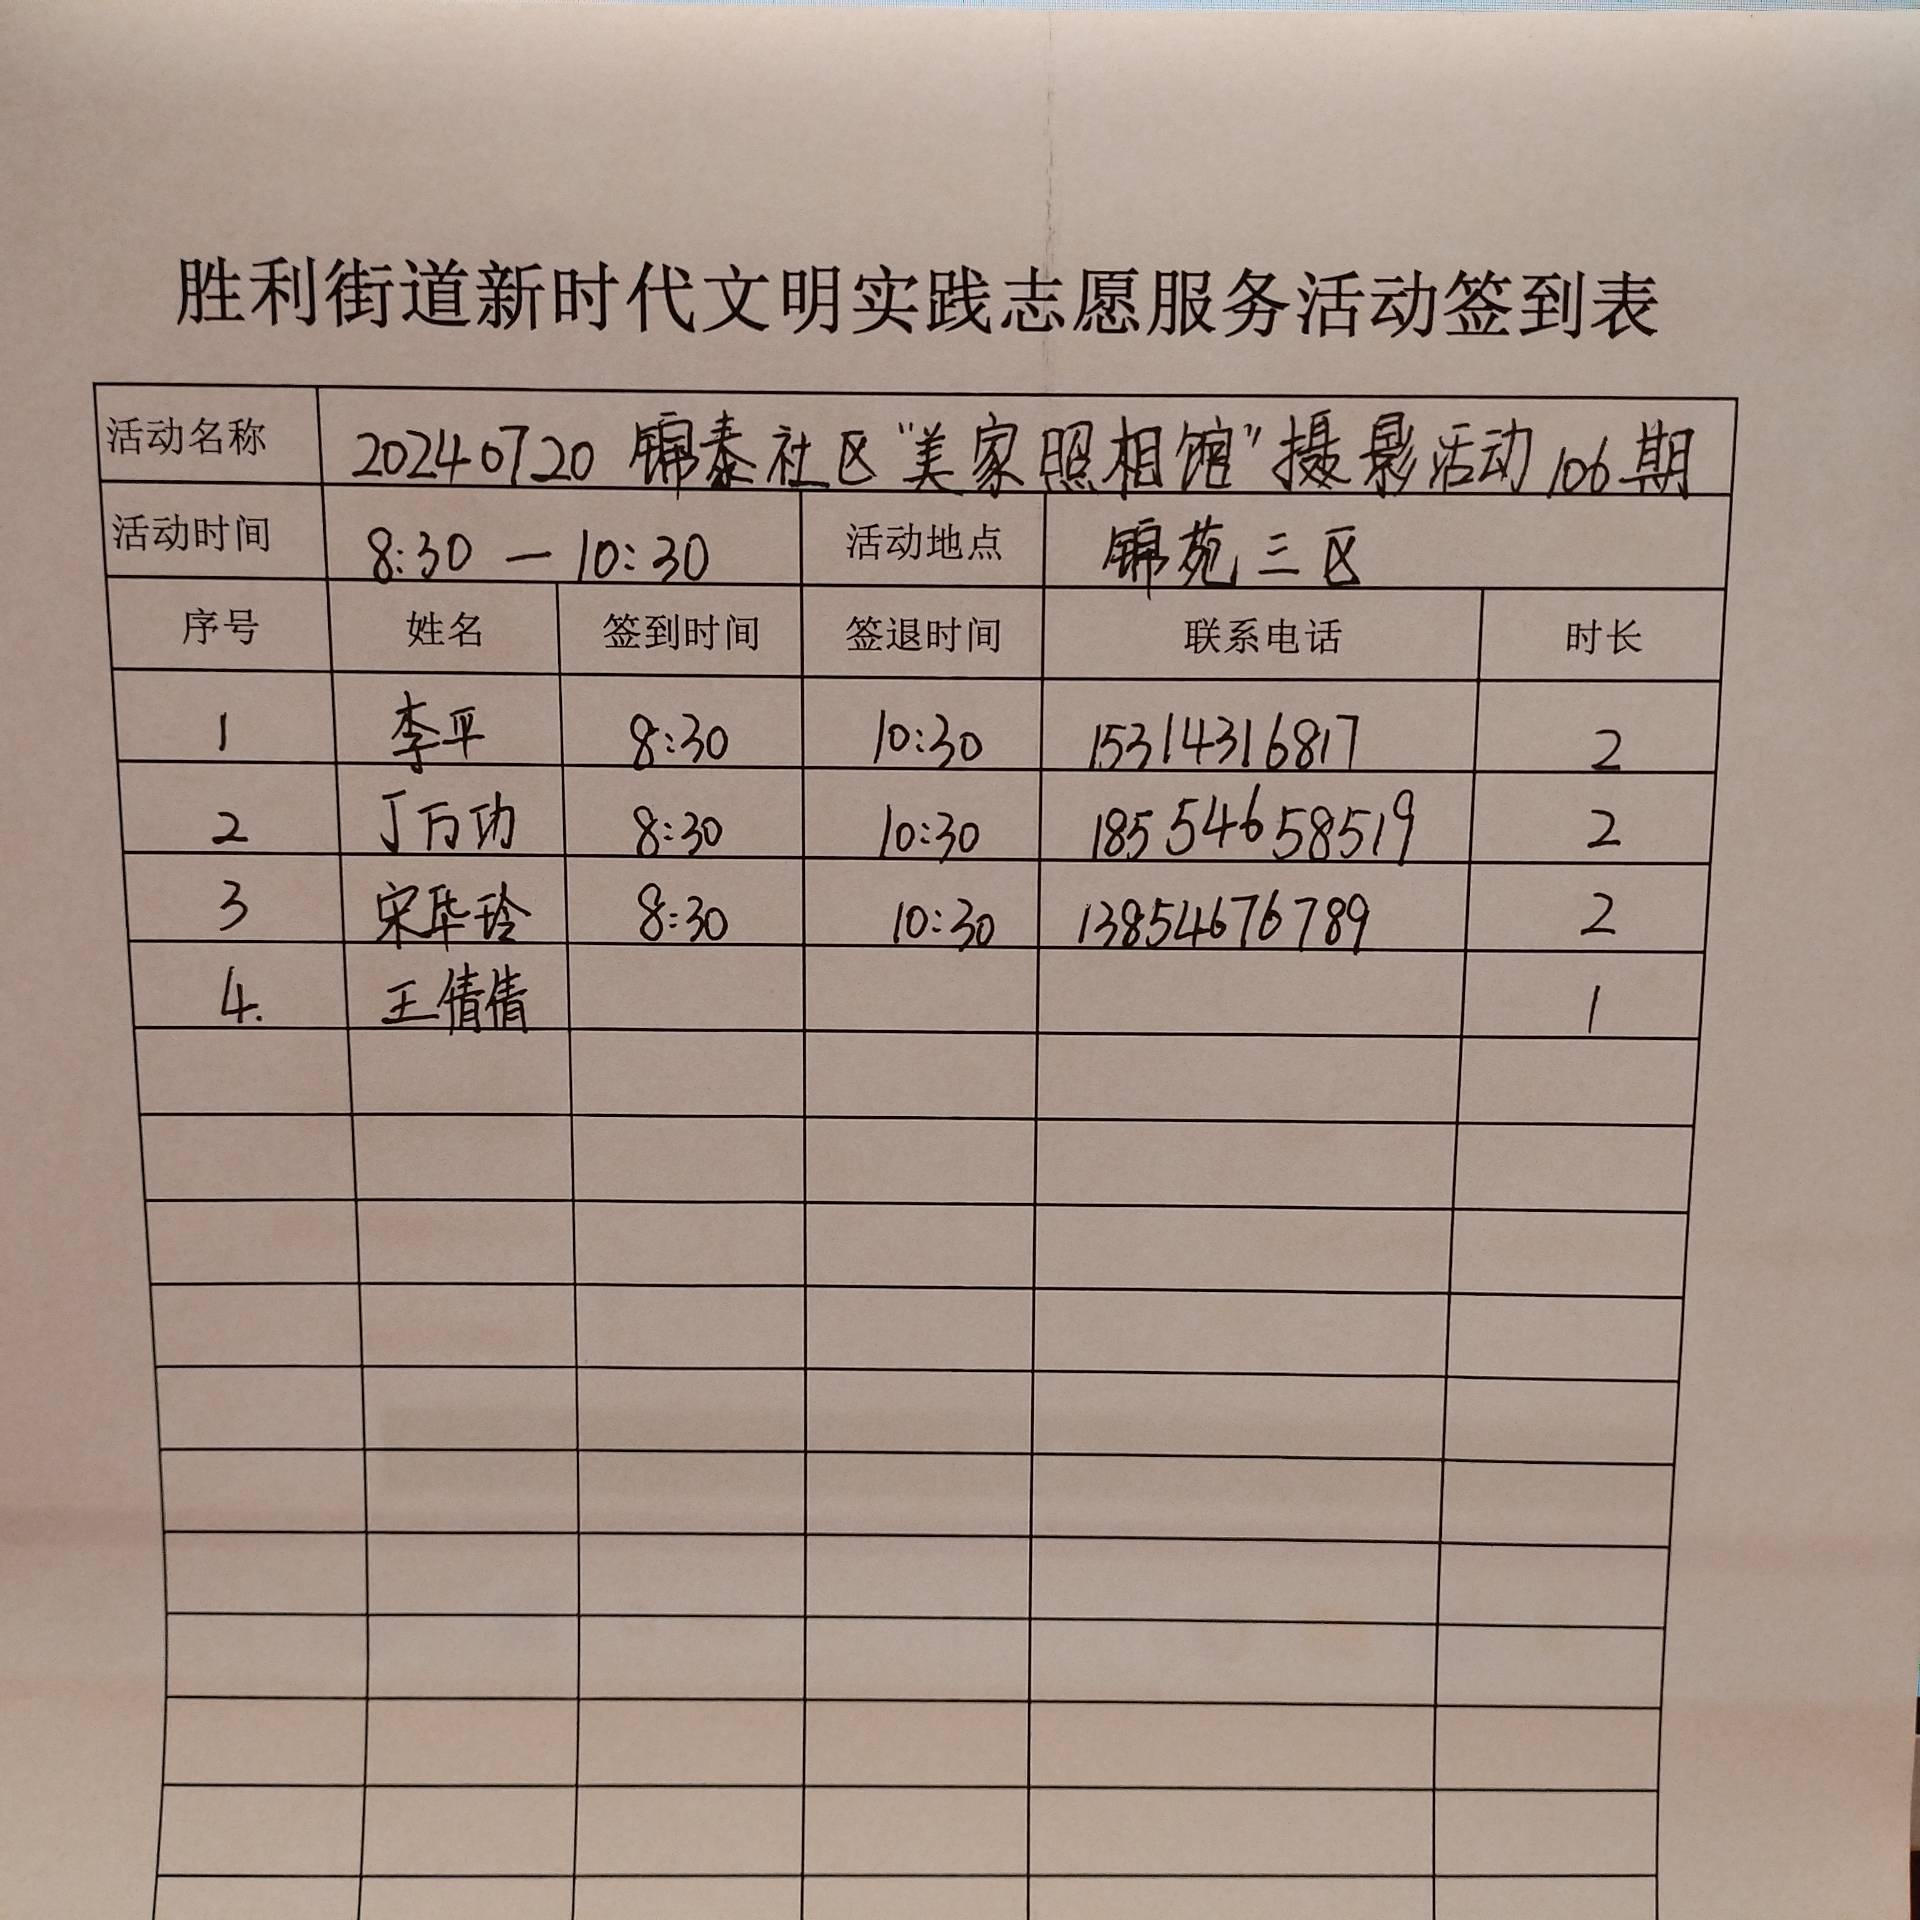 胜利街道新时代文明实践志愿服务活动签到表
活动名称 20240720 锦泰社区“美家照相馆”摄影活动106期
活动时间 8:30 — 10:30 活动地点 锦苑三区
序号 姓名 签到时间 签退时间 联系电话 时长
1 李平 8:30 10:30 15314316817 2
2 丁万功 8:30 10:30 18554658519 2
3 宋华玲 8:30 10:30 13854676789 2
4. 王倩倩 1